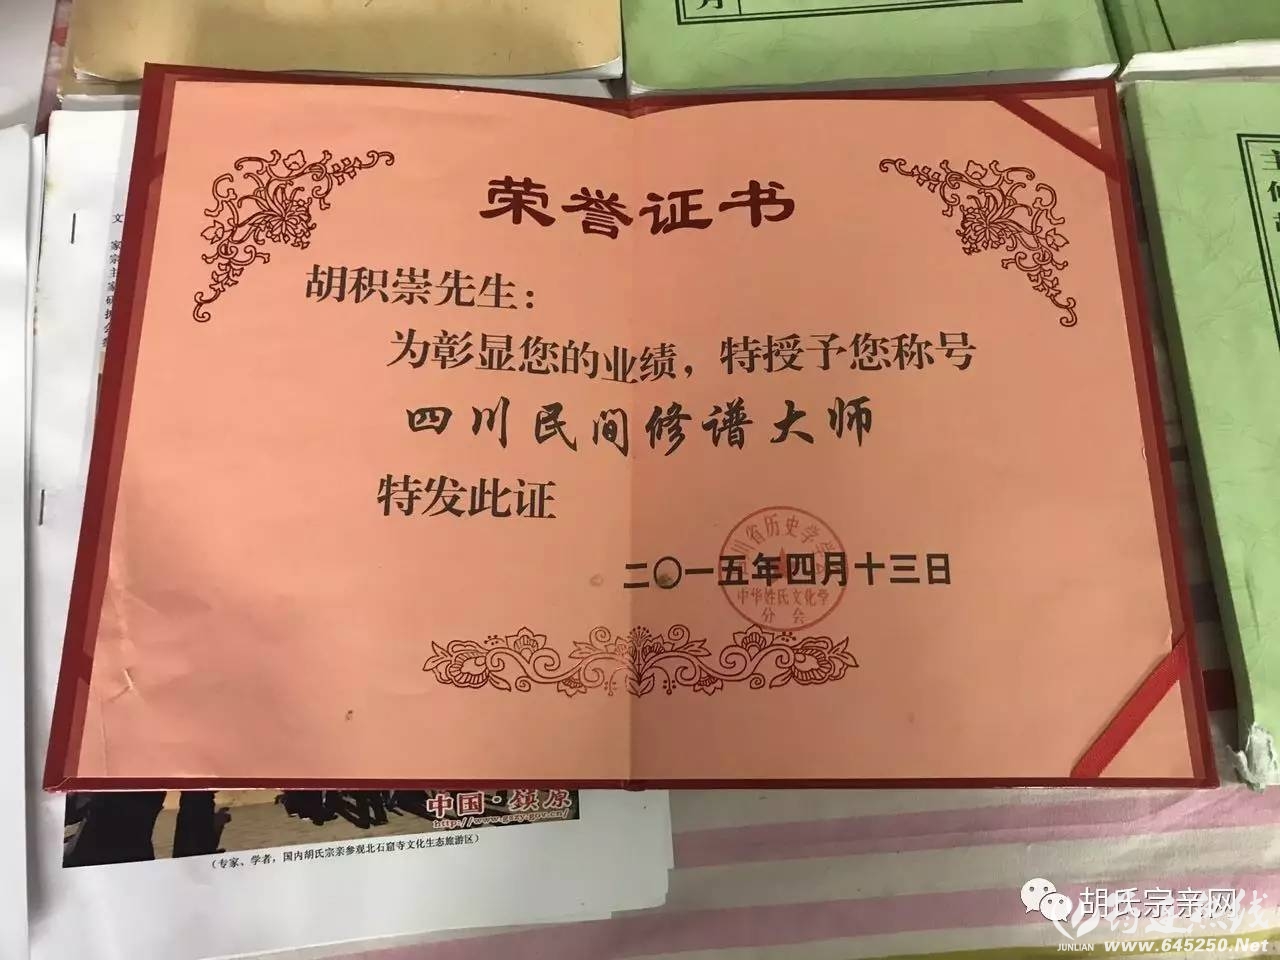 月
荣誉证书
胡积崇先生：
为彰显您的业绩，特授予您称号
四川民间修谱大师
特发此证
二〇一五年四月十三日
四川省历史学学会
中华姓氏文化学
分会
文
家
宗
主
家
中国·镇原
http://www.gszy.gov.cn/
（专家、学者，国内胡氏宗亲参观北石窟寺文化生态旅游区）
胡氏宗亲网
JUNLIAN
www.645250.Net